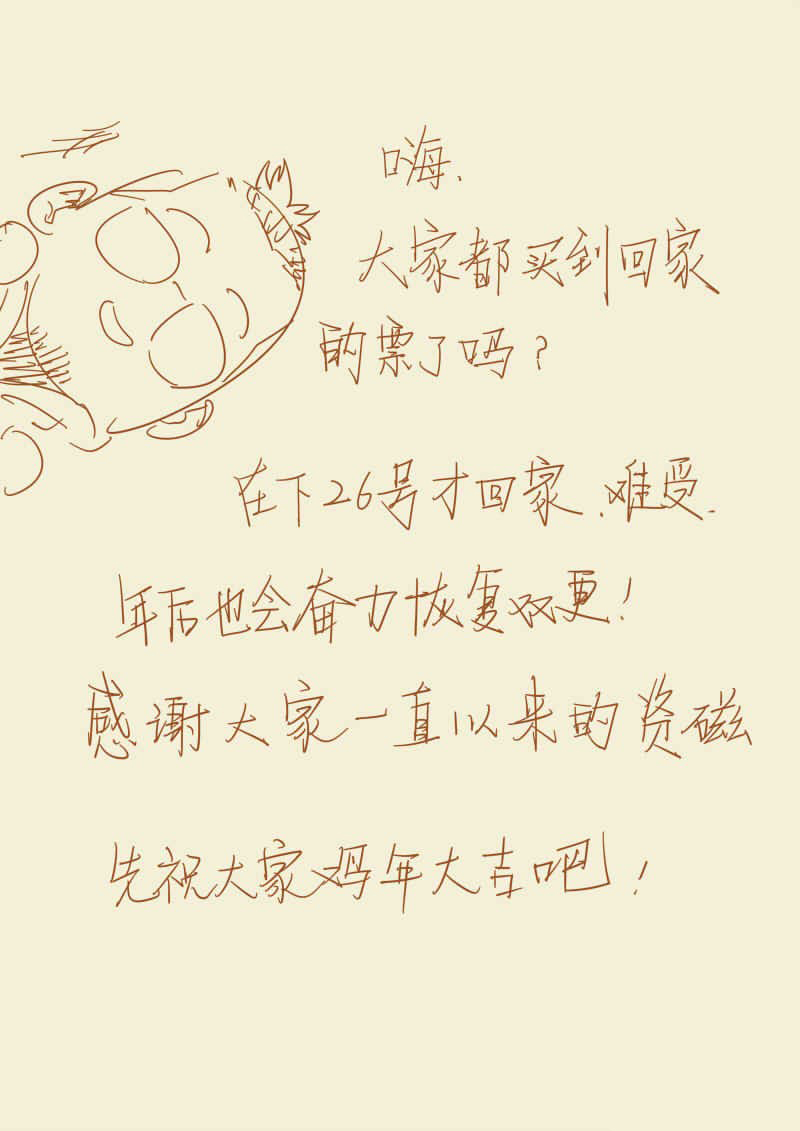 嗨.
大家都买到回家
的票了吗?
在下26号才回家.难受.
年后也会奋力恢复双更!
感谢大家一直以来的资磁
先祝大家鸡年大吉吧!